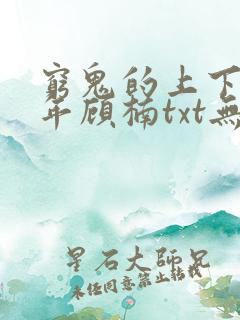 窮鬼的上下
年顾楠txt無
星石大師兄
未经同意禁止转载